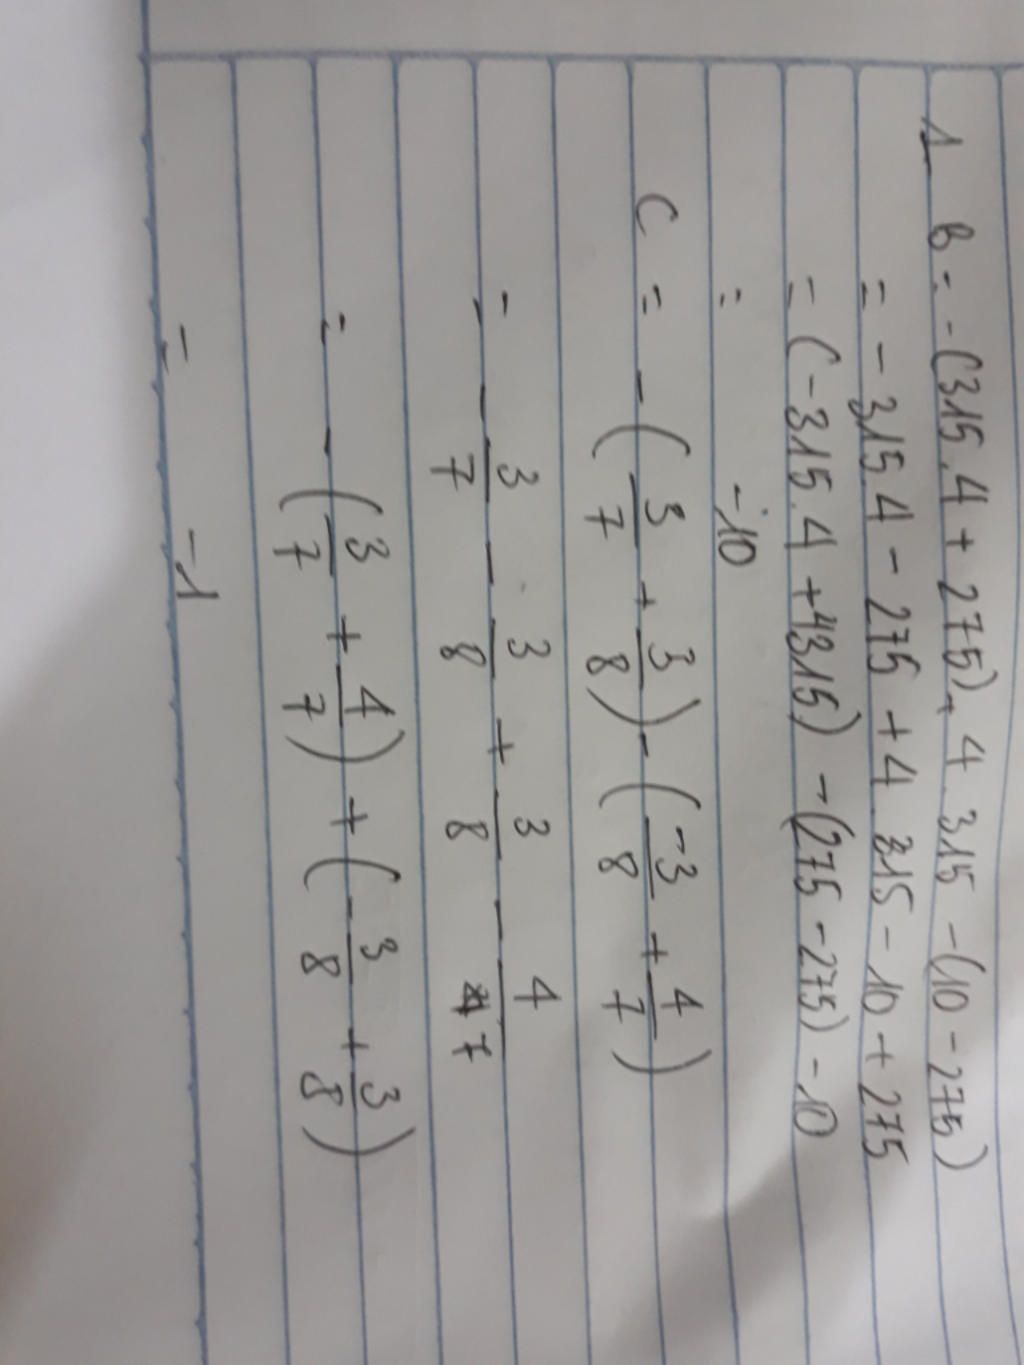 1 B = -(315.4 + 275) + 4.315 - (10 - 275)
= - 315.4 - 275 + 4.315 - 10 + 275
= (-315.4 + 4315) - (275 - 275) - 10
= -10
C = - (3/7 + 3/8) - (-3/8 + 4/7)
= - 3/7 - 3/8 + 3/8 - 4/7
= - (3/7 + 4/7) + (- 3/8 + 3/8)
= -1